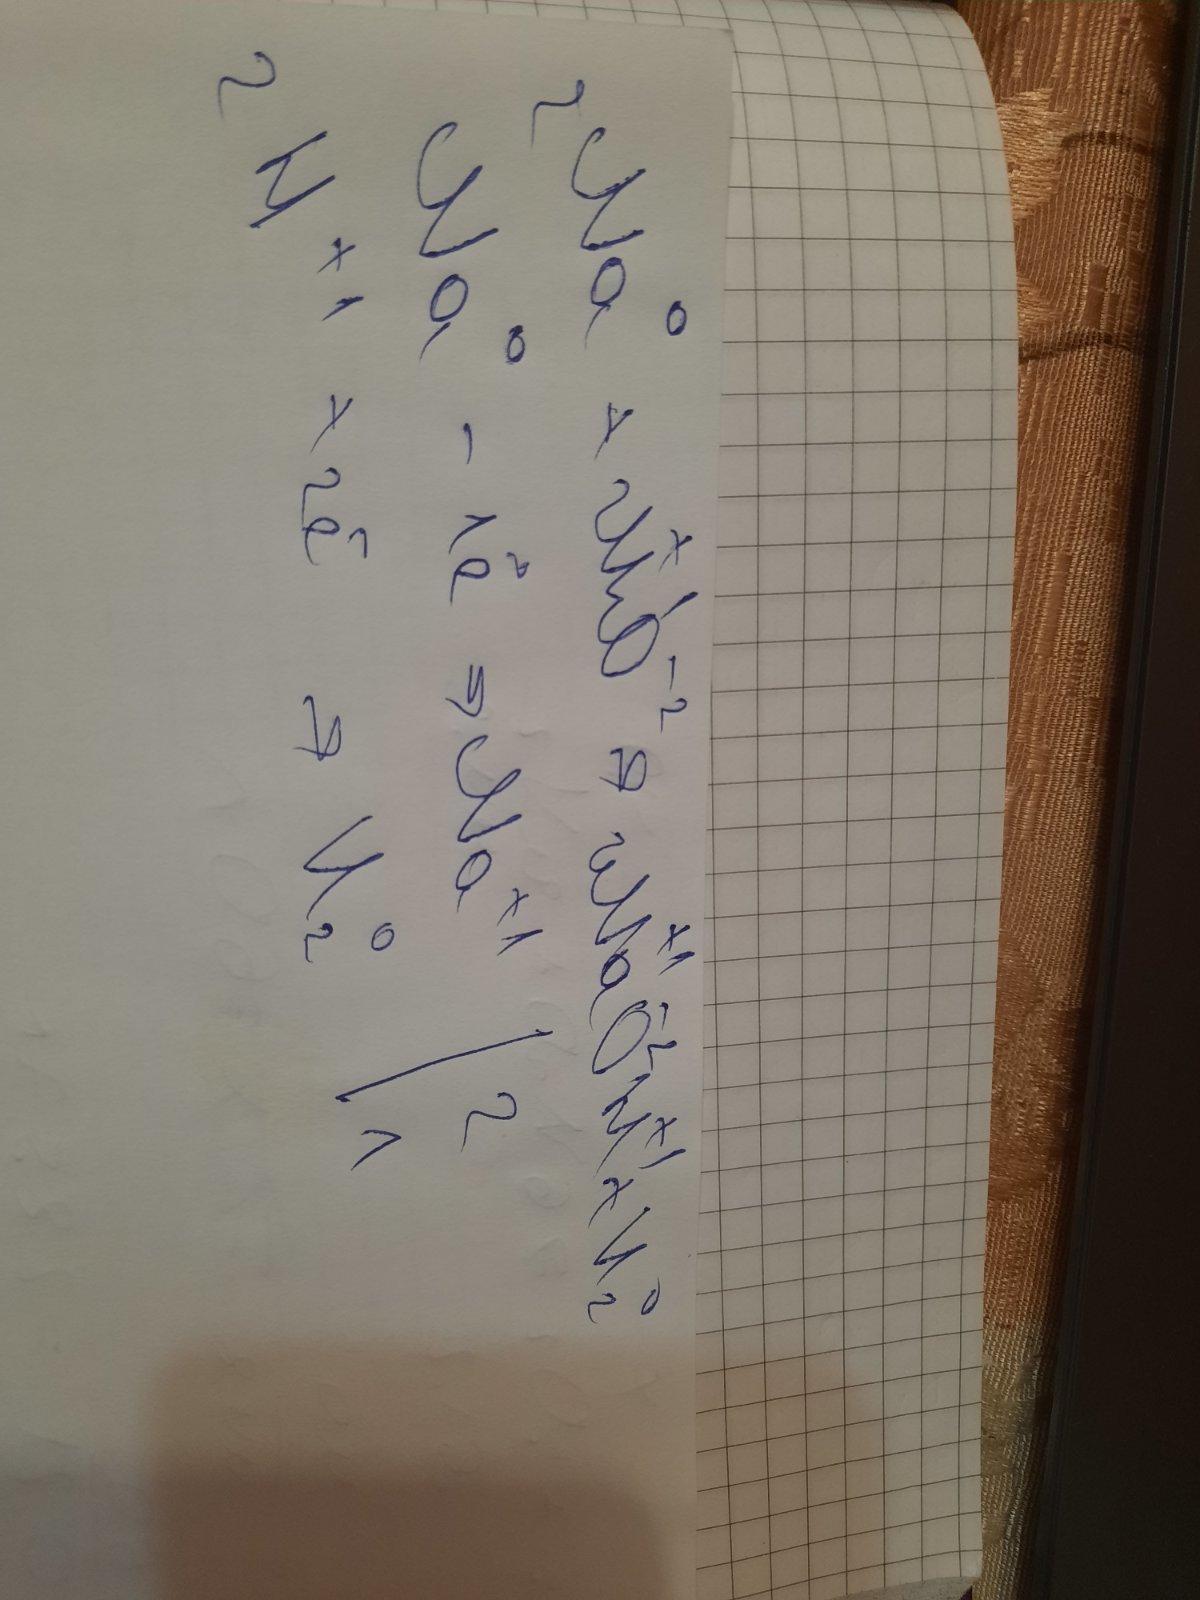 2Na⁰ + 2H₂⁺¹O⁻² → 2Na⁺¹O⁻²H⁺¹ + H₂⁰
Na⁰ - 1e⁻ → Na⁺¹ | 2
2H⁺¹ + 2e⁻ → H₂⁰ | 1